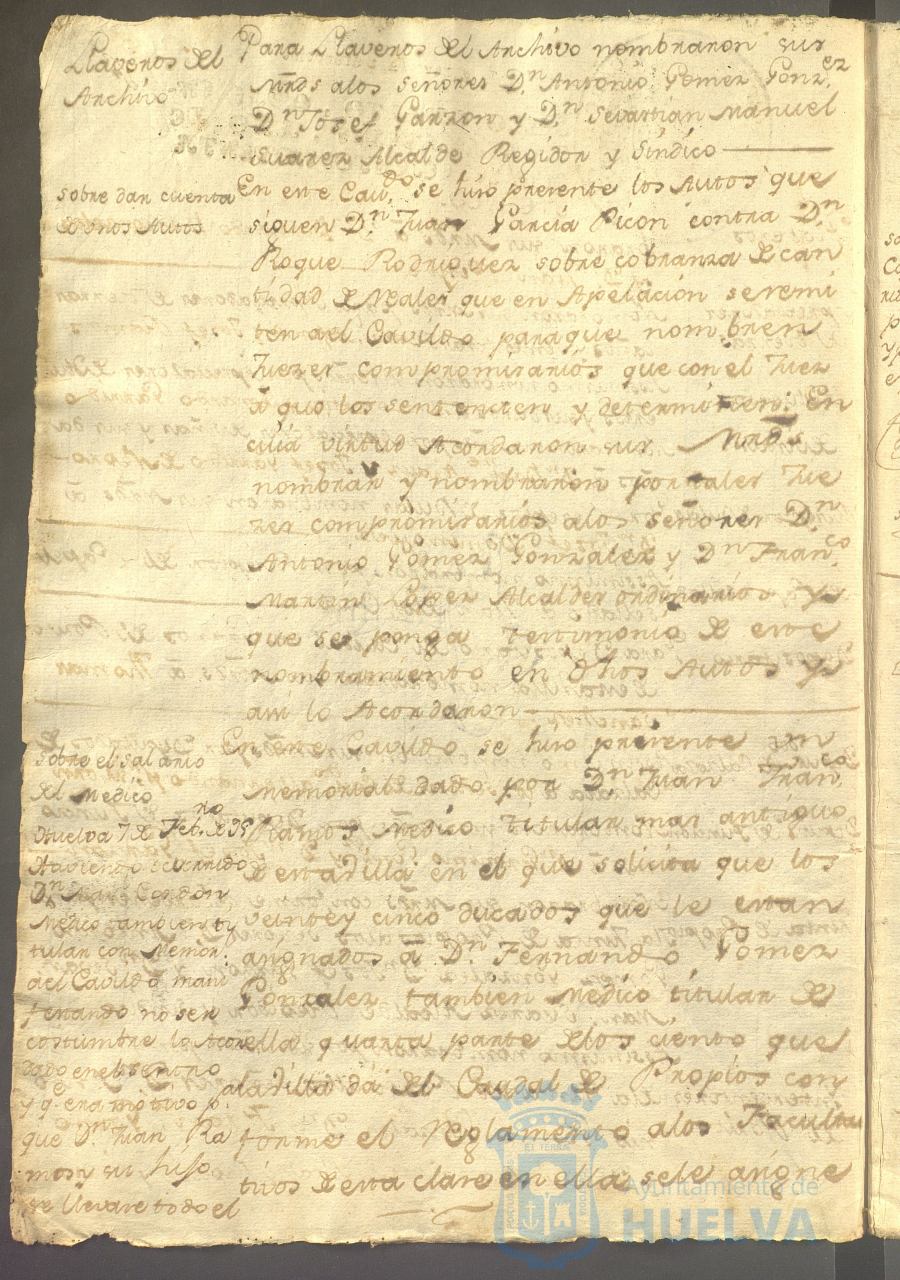 Llaveros del
Archivo
Para Llaveros del Archivo nombraron sus
Mrds alos Señores Dn. Antonio Gomez Gonzez
Dn Josef Garzon y Dn Sevastian Manuel
Suarez Alcalde Regidor y Sindico
sobre dar cuenta
de unos Autos
En este Cavdo. se hizo presente los Autos que
siguen Dn. Juan Garcia Picon contra Dn
Roque Rodriguez sobre cobranza de can
tidad de Reales que en Apelacion se remi
ten a el Cavildo para que nombren
Juezes compromisarios que con el Juez
a quo los sentencien y determinen: En
cuia virtud Acordaron sus Mrds
nombrar y nombraron por tales Jue
zes compromisarios alos Señores Dn
Antonio Gomez Gonzalez y Dn Franco.
Martin Lopez Alcaldes ordinarios y
que se ponga testimonio de este
nombramiento en dhos Autos y
asi lo Acordaron
sobre el salario
del Medico
Huelva 7 de Febro. de 95
Haviendo ocurrido
Dn Cordon
Medico tambien ti
tular con Memor.
a el Cavildo mani
festando no ser
costumbre lo Acor
dado en el
y qe. era motivo pa.
que Dn. Juan Ra
mos y su hijo
se llevase todo el
En este Cavildo se hizo presente un
Memorial dado por Dn Juan Franco.
Ramos Medico titular mas antiguo
de esta Villa en el que solicita que los
veinte y cinco ducados que le estan
asignados a Dn. Fernando Gomez
Gonzalez tambien Medico titular de
ella, quarta parte de los ciento que
la Villa da del Caudal de Propios con
forme el Reglamento alos Faculta
tivos de esta clase en ella, se le asigne
Ayuntamiento de
HUELVA